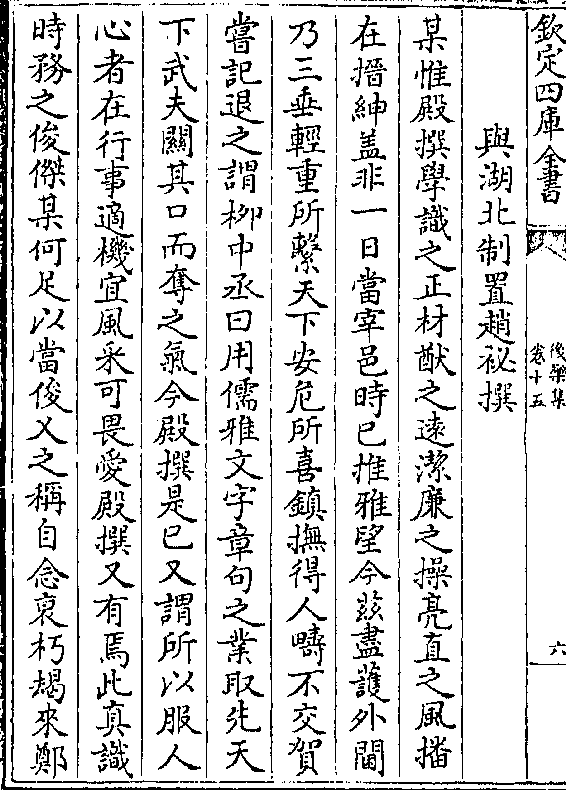 欽定四庫全書
後樂集
卷十五
六
與湖北制置趙祕撰
某惟殿撰學識之正材猷之遠潔廉之操亮直之風播
在搢紳蓋非一日當宰邑時已推雅望今茲盡護外閫
乃三垂輕重所繫天下安危所喜鎮撫得人疇不交賀
嘗記退之謂柳中丞曰用儒雅文字章句之業取先天
下武夫關其口而奪之氣今殿撰是已又謂所以服人
心者在行事適機宜風采可畏愛殿撰又有焉此真識
時務之俊傑某何足以當俊乂之稱自念衰朽朅來鄭